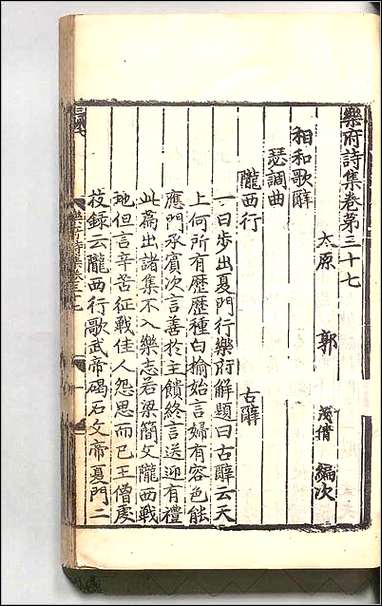 樂府詩集卷第三十七
太原 郭 茂倩 編次
相和歌辭
瑟調曲
隴西行 古辭
一曰步出夏門行樂府解題曰古辭云天
上何所有歷歷種白榆始言婦有容色能
應門承賓次言善於主饋終言送迎有禮
此篇出諸集不入樂志若梁簡文隴西戰
地但言辛苦征戰佳人怨思而已王僧虔
技録云隴西行歌武帝碣石文帝夏門二
樂府詩集卷三十七
一